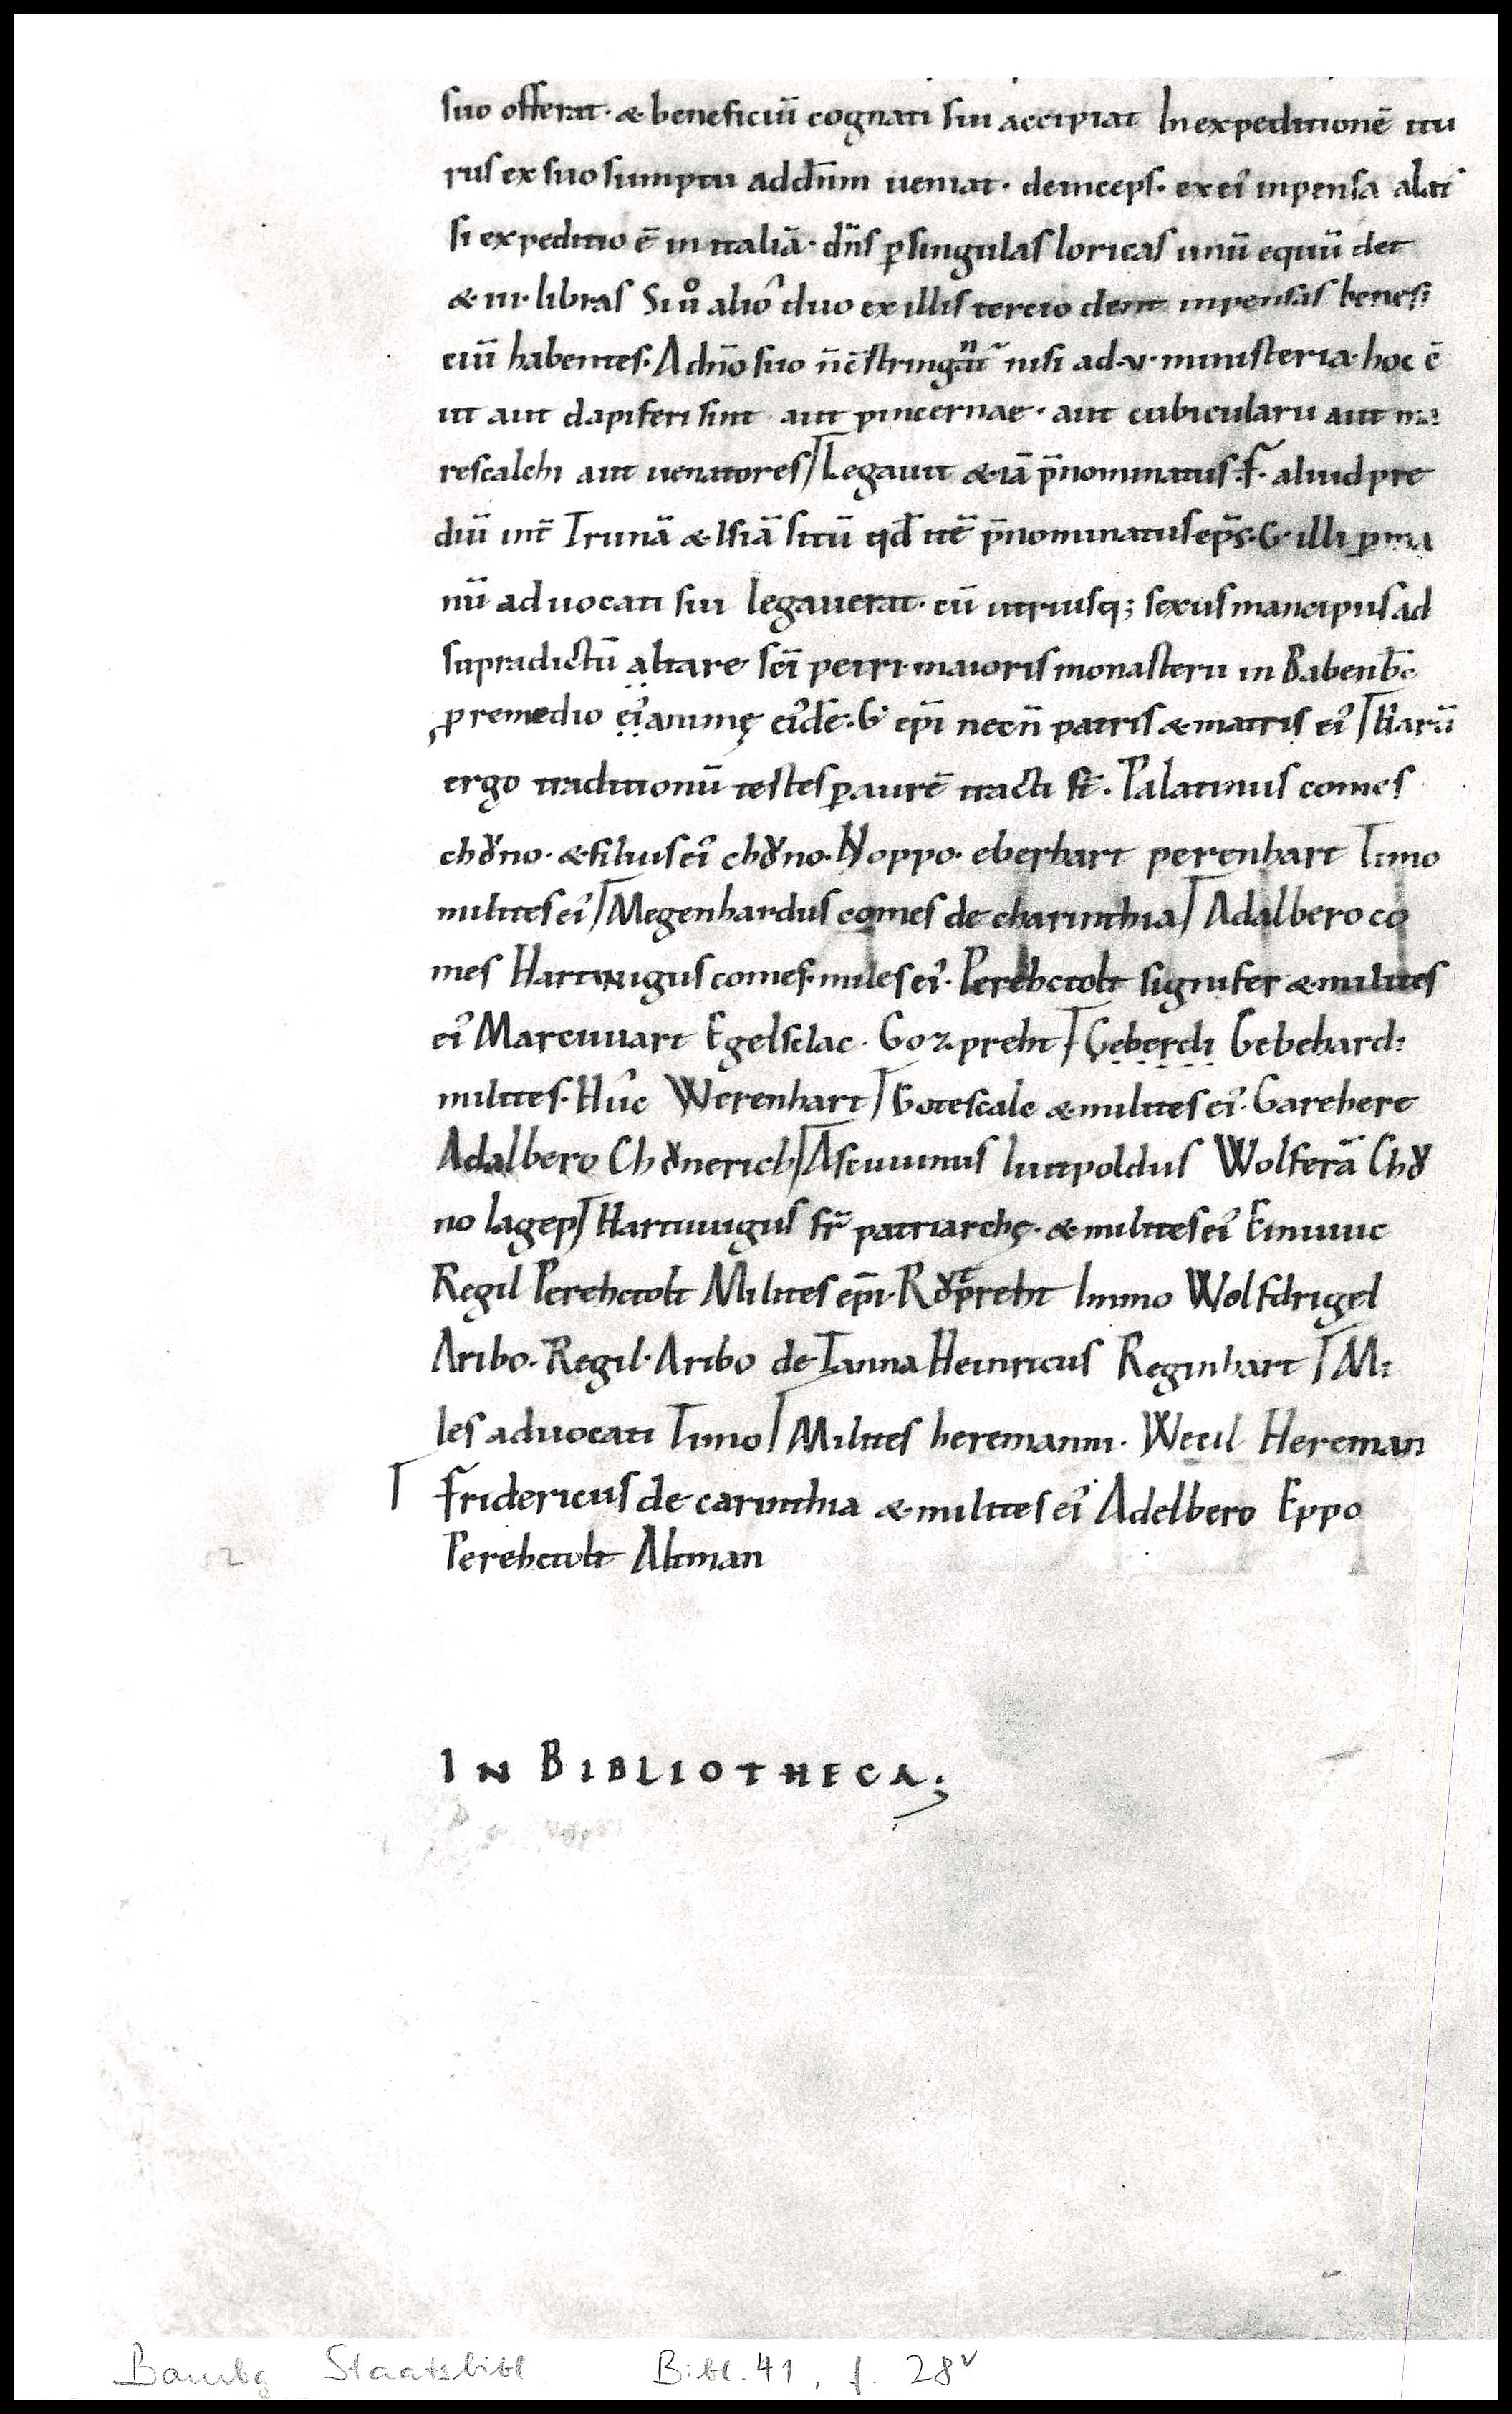 suo offerat· & beneficiū cognati sui accipiat In expeditionē itu
rus ex suo sumptu ad dn̄m ueniat· deinceps· ex ei᾽ inpensa alat᾽
si expeditio ē in italiā· dn̄s ꝑ singulas loricas unū equū det
& ·iii· libras Si ůo alio᾽ duo ex illis tercio dent inpensas benefi
ciū habentes· A dn̄o suo n̄ c̄stringant᾽ nisi ad ·v· ministeria· hoc ē
ut aut dapiferi sint aut pincernae· aut cubicularii aut ma
rescalchi aut uenatores / Legauit & iā p̄nominatus ·F· aliud pre
diū int̄ Trunā & Isiā sitū qd̄ itē p̄nominatus ep̄s ·G· illi ꝑ ma
nū aduocati sui legauerat· cū utriusq; sexus mancipiis ad
supradictū altare sc̄i petri maioris monasterii in Babenb̄c
ꝓ remedio ei᾽ animę ei᾽dē ·G· ep̄i necn̄ patris & matris ei᾽ / Harū
ergo traditionū testes ꝑ aurē tracti st̄· Palatinus comes
chǒno· & filius ei᾽ chǒno· Noppo· eberhart perenhart Timo
milites ei᾽ / Megenhardus comes de charinthia / Adalbero co
mes Hartwigus comes· miles ei᾽· Perehctolt signifer & milites
ei᾽ Marcuuart Egelsclac· Gozpreht / Geberch Gebehardi
milites· Hûc Werenhart / Gotescalc & milites ei᾽· Garehere
Adalbero Chǒnerich / Ascuuinus luitpoldus Wolferā Chǒ
no lagep / Hartuuigus fr̄ patriarchę· & milites ei᾽ Einuuic
Regil Perehctolt Milites ep̄i· Rǒtpreht Immo Wolfdrigel
Aribo· Regil· Aribo de Tanna Heinricus Reginhart / Mi
les aduocati Timo / Milites heremanni· Wecil Hereman
Fridericus de carinthia & milites ei᾽ Adelbero Eppo
Perehctolt Altman
IN BIBLIOTHECA;
Bambg Staatsbibl Bibl. 41, f. 28v